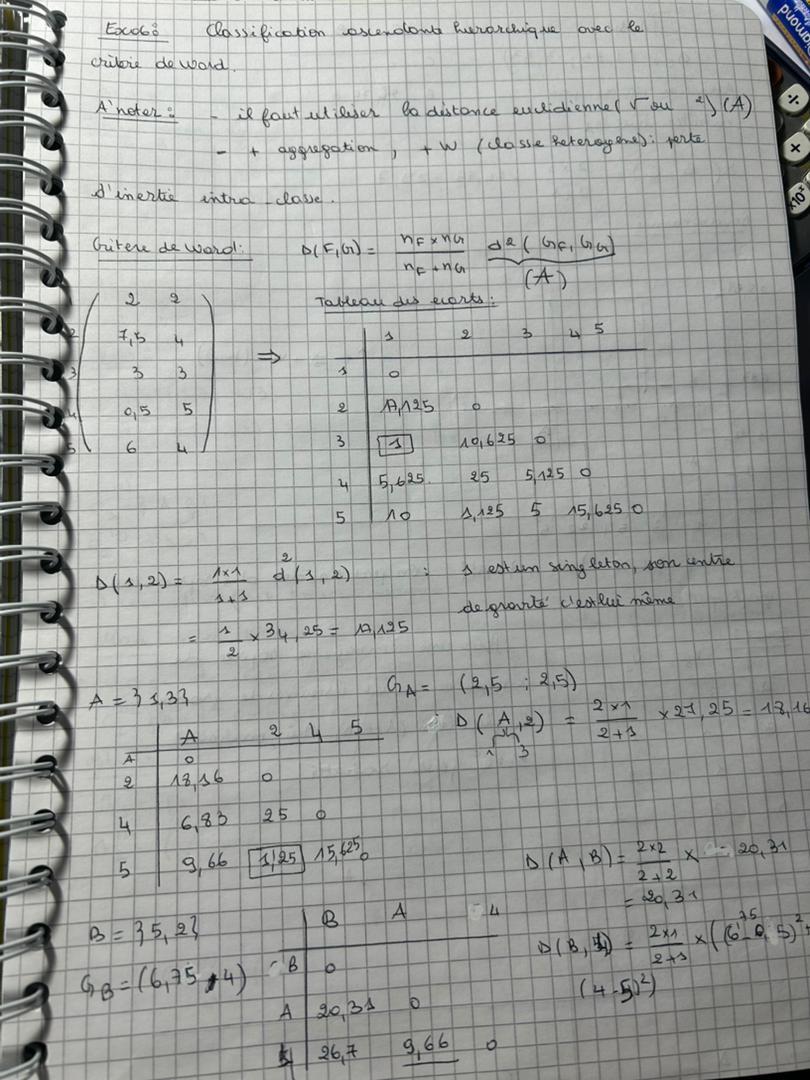 Exo6: Classification ascendante hierarchique avec le
critère de Ward.
A noter: - il faut utiliser la distance euclidienne (√ ou ²) (A)
- + aggregation, + W (classe heterogène): perte
d'inertie intra-classe.
Critere de Ward: D(F,G) = nF × nG / nF + nG d²(GF, GG)
(A)
Tableau des ecarts:
2 2
2 7,5 4
3 3 3
4 0,5 5
5 6 4
⇒
1 2 3 4 5
1 0
2 17,125 0
3 1 10,625 0
4 5,625 25 5,125 0
5 10 1,125 5 15,625 0
D(1,2) = 1×1 / 1+1 d²(1,2) : 1 est un singleton, son centre
de gravité c'est lui même
= 1/2 × 34,25 = 17,125
A = {1,3} GA = (2,5 ; 2,5)
D(A,2) = 2×1 / 2+1 × 27,25 = 18,16
1 3
A 2 4 5
A 0
2 18,16 0
4 6,83 25 0
5 9,66 1,125 15,625 0
D(A,B) = 2×2 / 2+2 × 20,31
= 20,31
B = {5,2}
GB = (6,75 ; 4)
B A 4
B 0
A 20,31 0
4 26,7 9,66 0
D(B,4) = 2×1 / 2+1 × ((6,75 - 0,5)² +
(4-5)²)